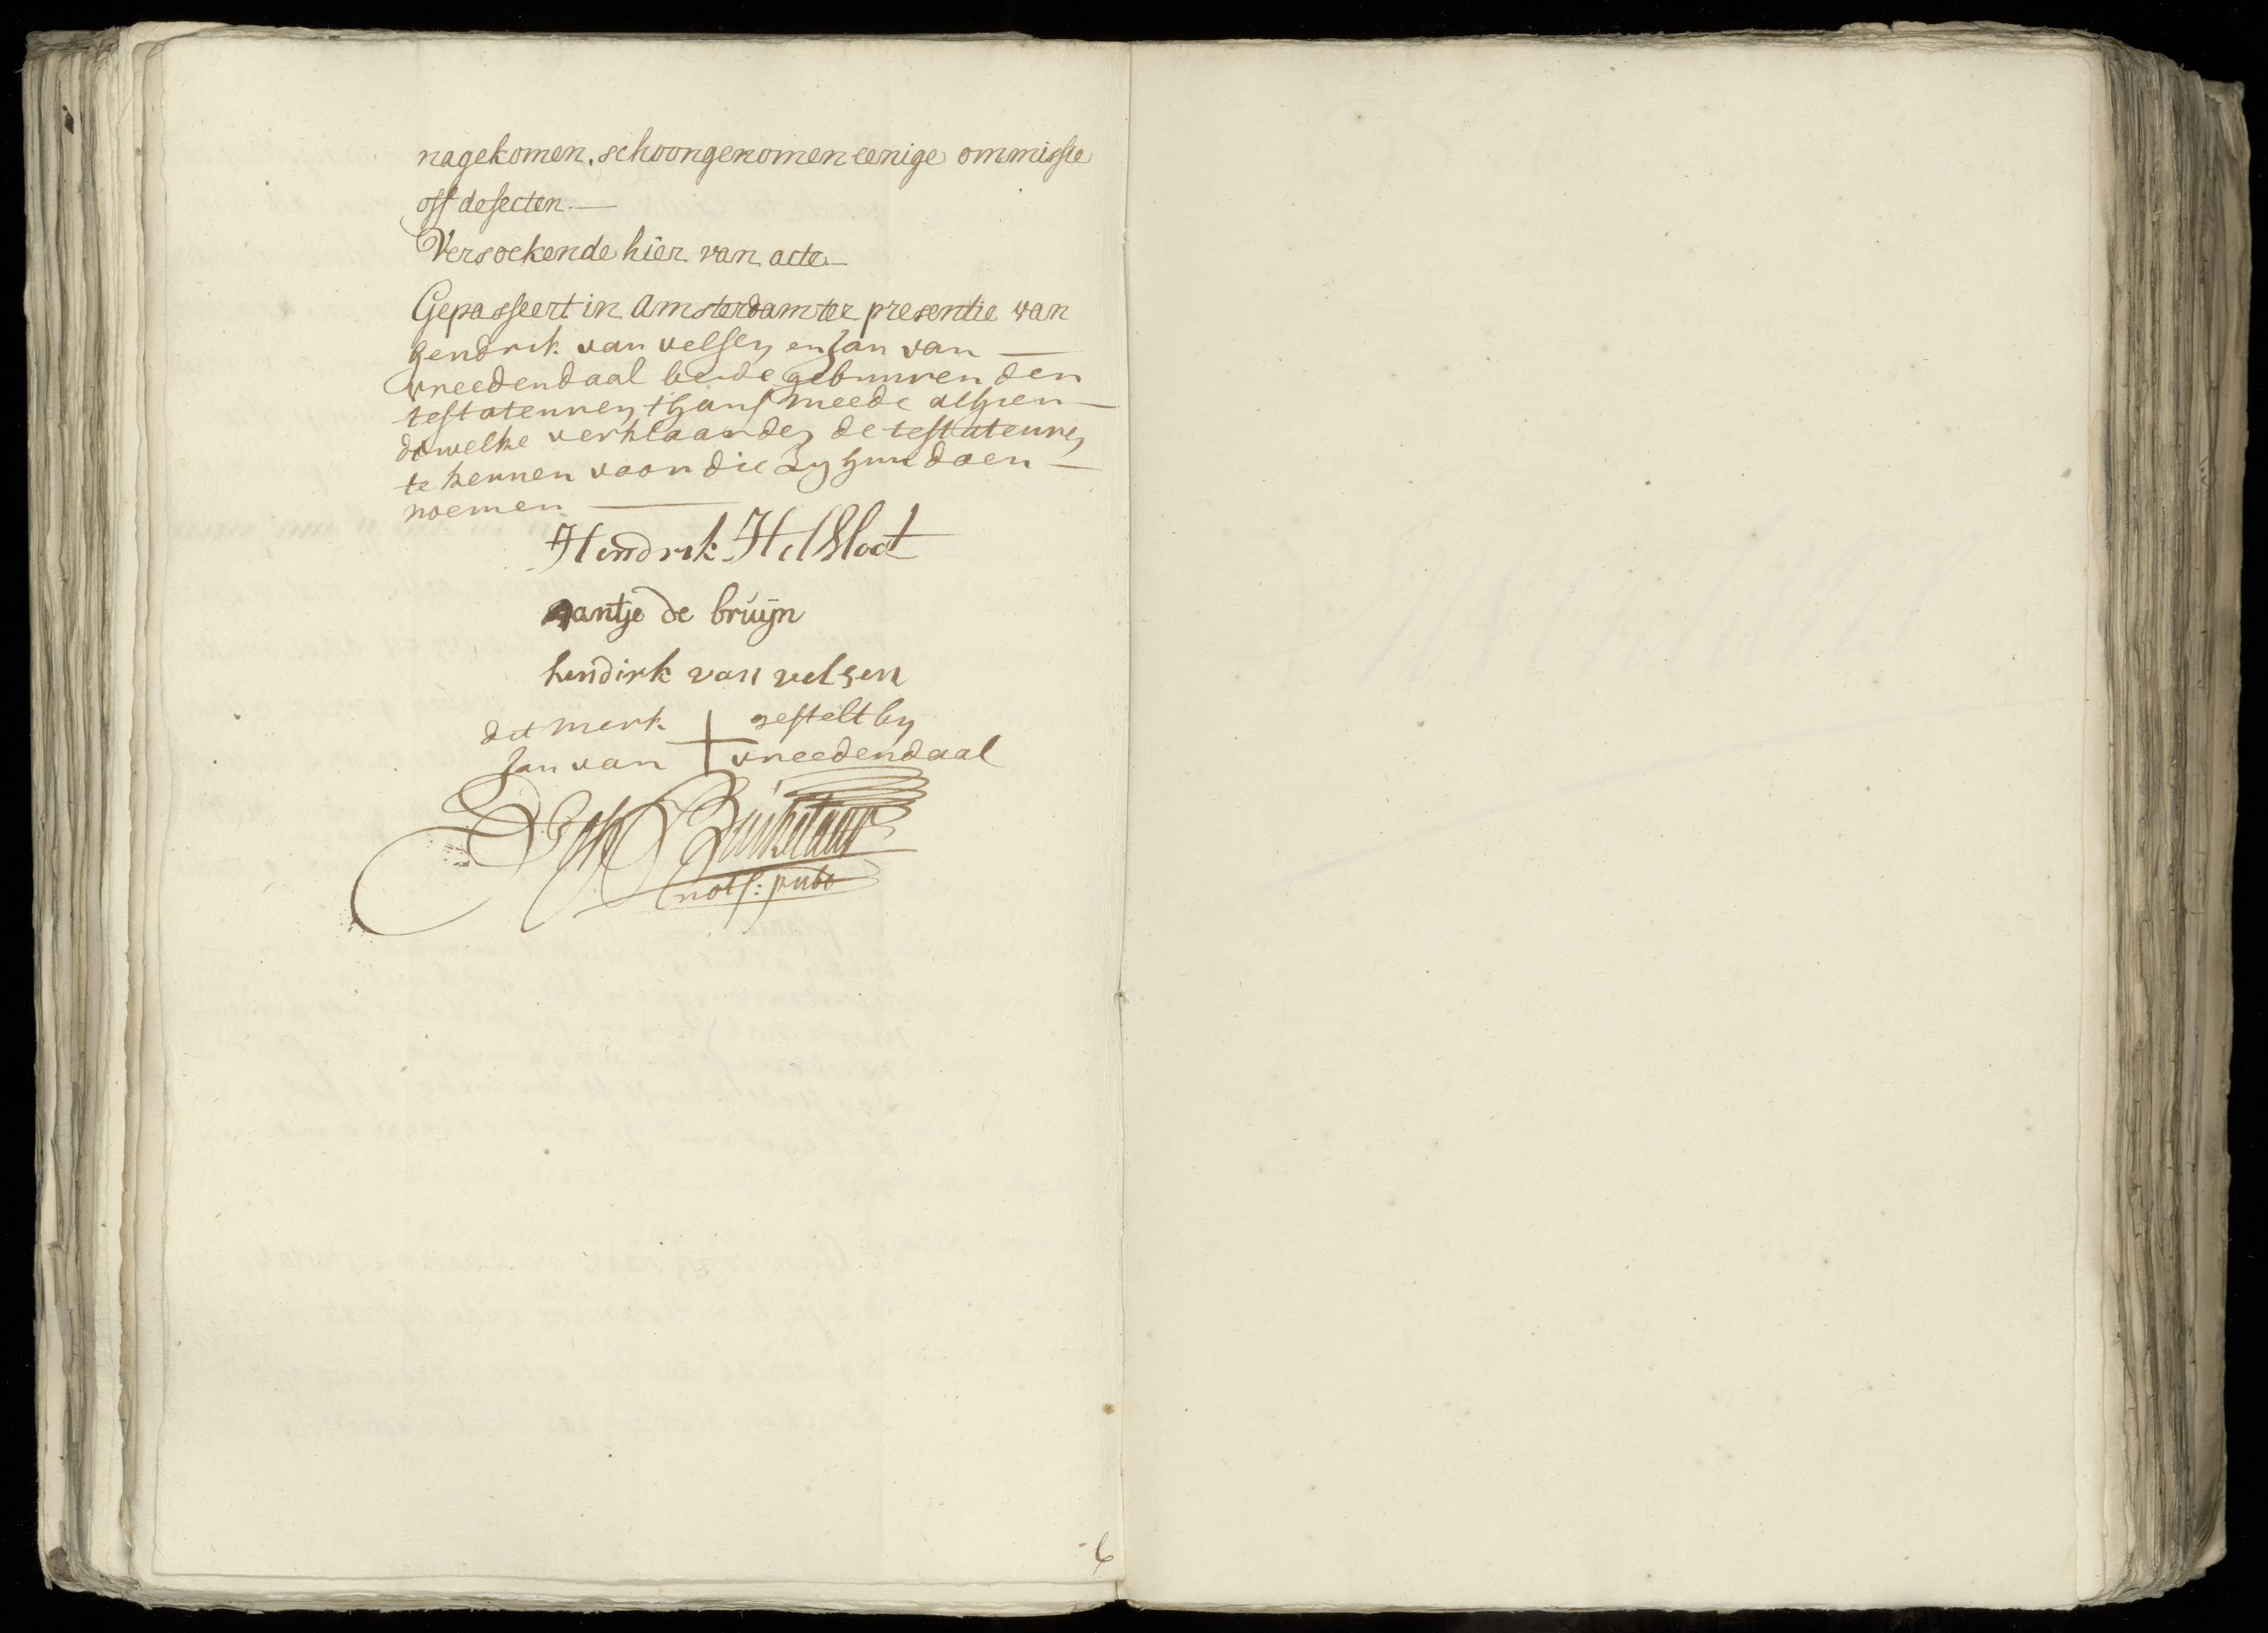 nagekomen, schoongenomen eenige ommissie
off defecten.—
Versoekende hier van acte—
Gepasseert in Amsterdam ter presentie van
Hendrik van velsen en Jan van —
vreedendaal beide gebuuren den
testateuren thans meede alhier —
dewelke verklaarden de testateuren
te kennen voor die Zy hun doen —
noemen —
Hendrik Helsloot
aantje de bruijn
hendirk van velsen
dit merk + gestelt by
Jan van vreedendaal
nots: pubs
6